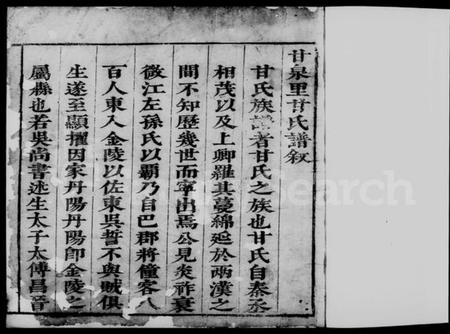 甘泉里甘氏譜叙
甘氏族譜者甘氏之族也甘氏自秦丞
相茂以及上卿羅其蔓綿延於兩漢之
間不知歷幾世而寧出焉公見炎祚衰
微江左孫氏以霸乃自巴郡將僮客八
百人東入金陵以佐東吳誓不與賊俱
生遂至顯擢因家丹陽丹陽即金陵之
屬縣也若吳尚書述生太子太傅昌晉
search